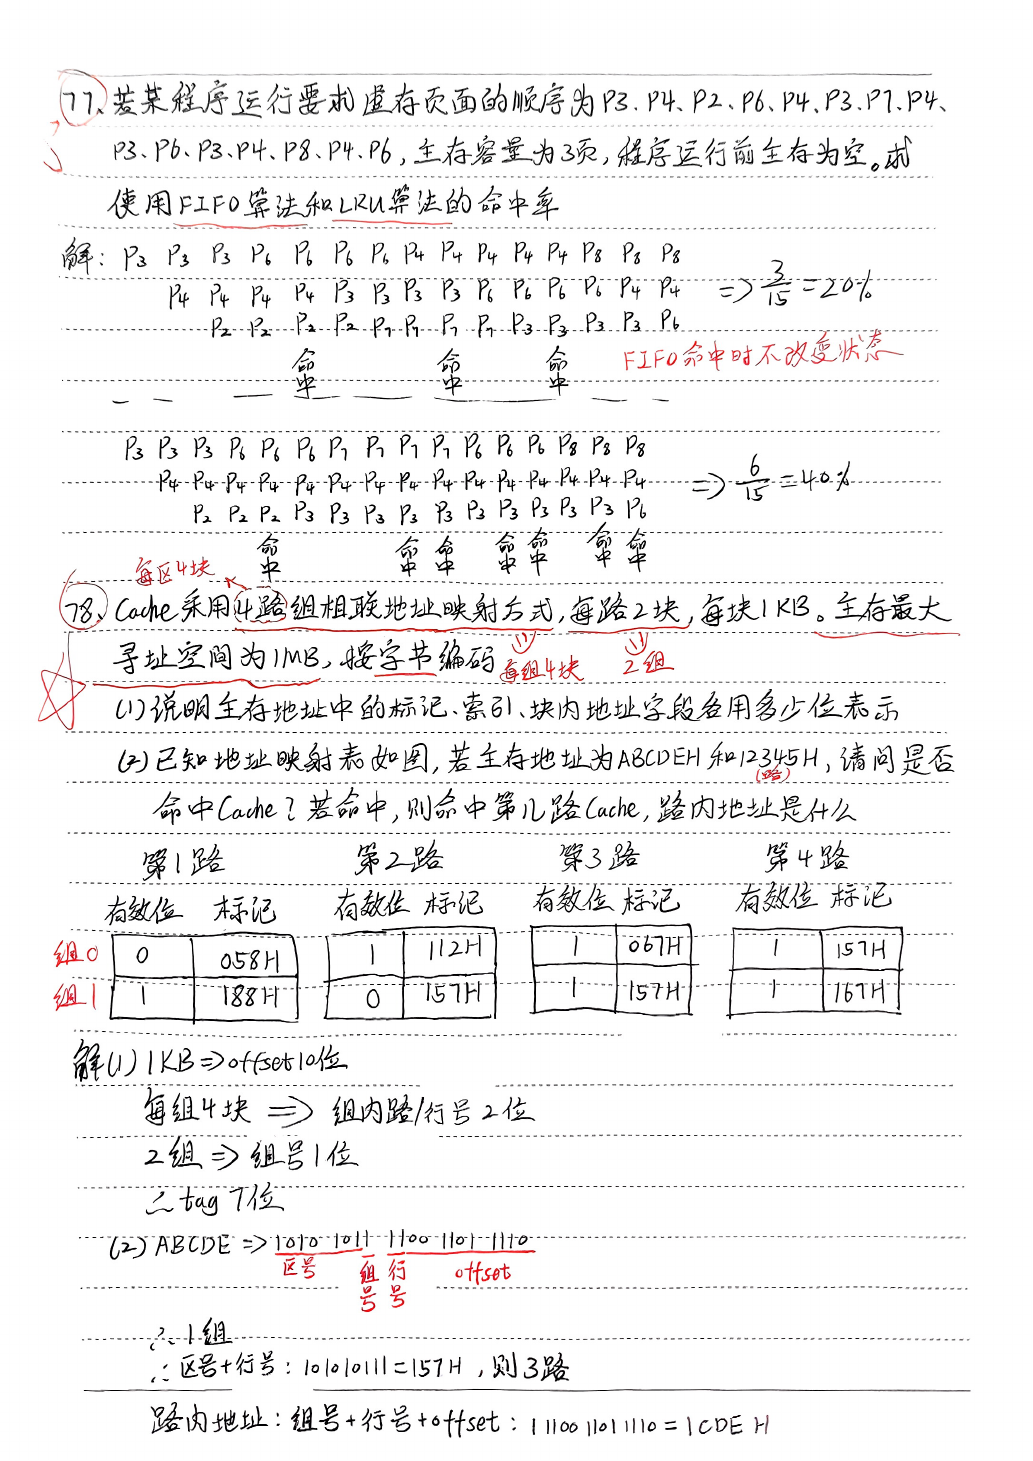 77、若某程序运行要求虚存页面的顺序为P3、P4、P2、P6、P4、P3、P7、P4、
P3、P6、P3、P4、P8、P4、P6，主存容量为3页，程序运行前主存为空。求
使用FIFO算法和LRU算法的命中率
解：P3 P3 P3 P6 P6 P6 P6 P4 P4 P4 P4 P4 P8 P8 P8
P4 P4 P4 P4 P3 P3 P3 P3 P6 P6 P6 P6 P4 P4 => 3/15 = 20%
P2 P2 P2 P2 P7 P7 P7 P7 P3 P3 P3 P3 P6
命中 命中 命中 FIFO命中时不改变状态
P3 P3 P3 P6 P6 P6 P7 P7 P7 P7 P6 P6 P6 P8 P8 P8
P4 P4 P4 P4 P4 P4 P4 P4 P4 P4 P4 P4 P4 P4 P4 => 6/15 = 40%
P2 P2 P2 P3 P3 P3 P3 P3 P3 P3 P3 P3 P3 P6
命中 命中 命中 命中 命中 命中 命中
每区4块
78、Cache采用4路组相联地址映射方式，每路2块，每块1KB。主存最大
寻址空间为1MB，按字节编码 每组4块 2组
(1)说明主存地址中的标记、索引、块内地址字段各用多少位表示
(2)已知地址映射表如图，若主存地址为ABCDEH和12345H，请问是否
(路)
命中Cache？若命中，则命中第几路Cache，路内地址是什么
第1路 第2路 第3路 第4路
有效位 标记 有效位 标记 有效位 标记 有效位 标记
组0 0 058H 1 112H 1 067H 1 157H
组1 1 188H 0 157H 1 157H 1 167H
解(1) 1KB=>offset10位
每组4块 => 组内路/行号2位
2组=>组号1位
∴tag 7位
(2) ABCDE => 1010 1011 1100 1101 1110
区号 组号 行号 offset
∴1组
∴区号+行号：101010111=157H，则3路
路内地址：组号+行号+offset：1 1100 1101 1110 = 1CDE H